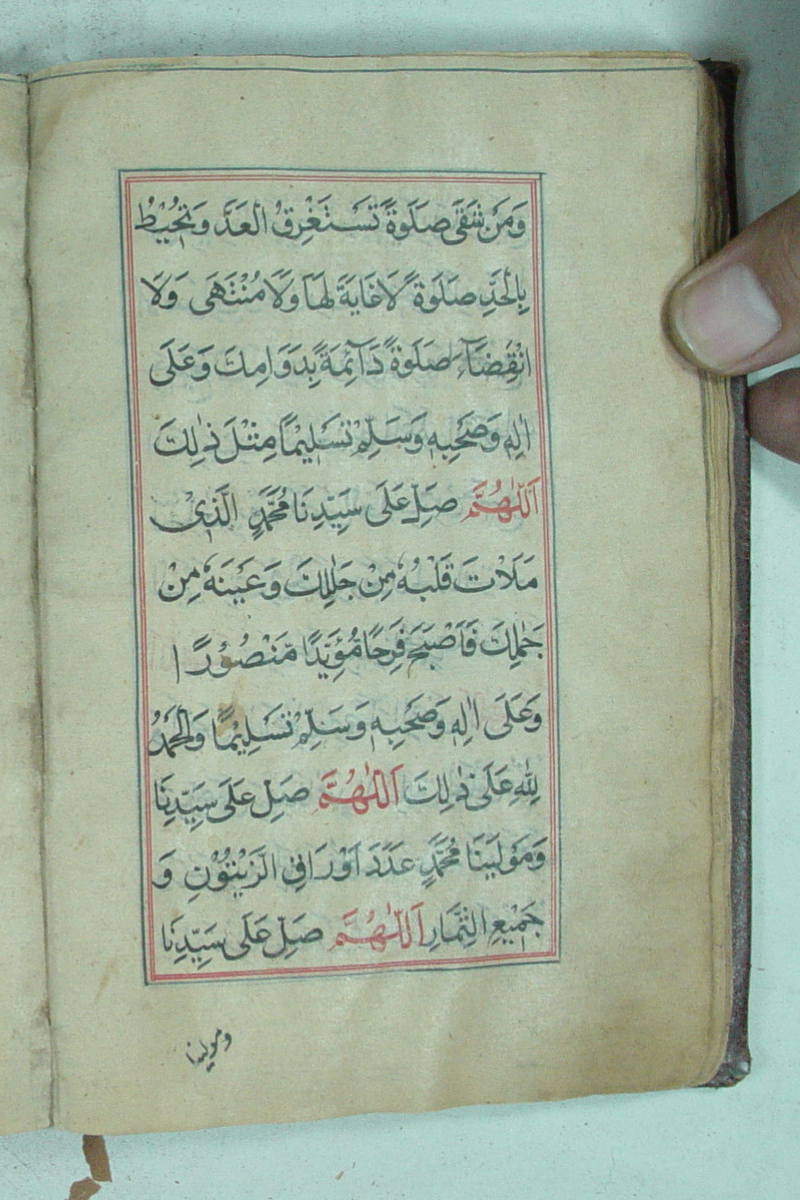 وَمَنْ شَقَى صَلَوةً تَسْتَغْرِقُ الْعَدَّ وَتُحِيْطُ
بِالْحَدِّ صَلَوةً لَا غَايَةَ لَهَا وَلَا مُنْتَهَى وَلَا
انْقِضَآءَ صَلَوةً دَآئِمَةً بِدَوَامِكَ وَعَلَى
اٰلِهٖ وَصَحْبِهٖ وَسَلِّمْ تَسْلِيْمًا مِثْلَ ذٰلِكَ
اَللّٰهُمَّ صَلِّ عَلَى سَيِّدِنَا مُحَمَّدٍ الَّذِيْ
مَلَاْتَ قَلْبَهٗ مِنْ جَلٰلِكَ وَعَيْنَهٗ مِنْ
جَمٰلِكَ فَاَصْبَحَ فَرِحًا مُؤَيَّدًا مَنْصُوْرًا
وَعَلَى اٰلِهٖ وَصَحْبِهٖ وَسَلِّمْ تَسْلِيْمًا وَالْحَمْدُ
لِلّٰهِ عَلَى ذٰلِكَ اَللّٰهُمَّ صَلِّ عَلَى سَيِّدِنَا
وَمَوْلَيْنَا مُحَمَّدٍ عَدَدَ اَوْرَاقِ الزَّيْتُوْنِ وَ
جَمِيْعِ الثِّمَارِ اَللّٰهُمَّ صَلِّ عَلَى سَيِّدِنَا
ومولينا